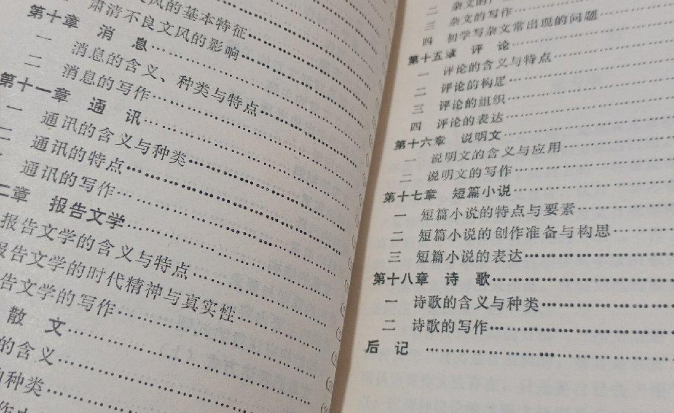 文风的基本特征
肃清不良文风的影响
第十章 消 息
一 消息的含义、种类与特点
二 消息的写作
第十一章 通 讯
一 通讯的含义与种类
二 通讯的特点
通讯的写作
二章 报告文学
报告文学的含义与特点
报告文学的时代精神与真实性
告文学的写作
散 文
的含义
种类
二 杂文的
三 杂文的写作
四 初学写杂文常出现的问题
第十五章 评 论
一 评论的含义与特点
二 评论的构思
三 评论的组织
四 评论的表达
第十六章 说明文
一 说明文的含义与应用
二 说明文的写作
第十七章 短篇小说
一 短篇小说的特点与要素
二 短篇小说的创作准备与构思
三 短篇小说的表达
第十八章 诗 歌
一 诗歌的含义与种类
二 诗歌的写作
后 记